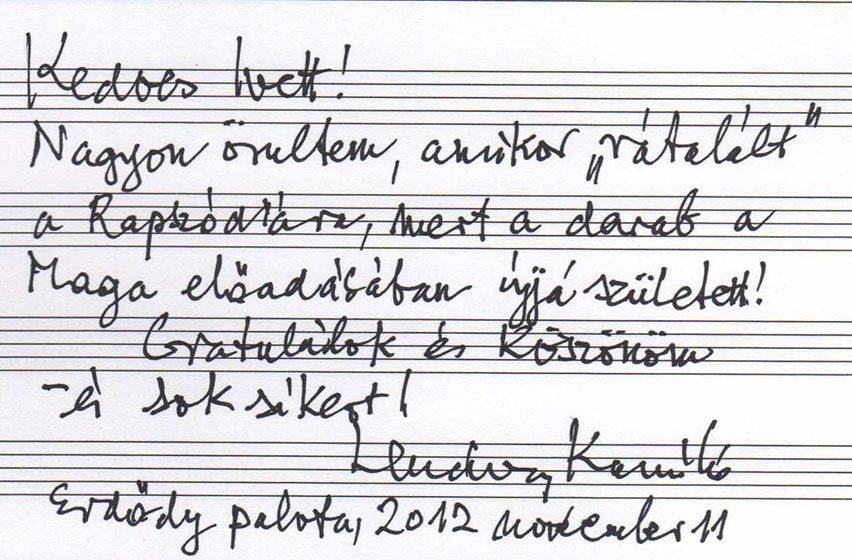 Kedves Ivett!
Nagyon örültem, amikor „rátalált"
a Rapszódiára, mert a darab a
Maga előadásában újjá született!
Gratulálok és köszönöm
- és sok sikert!
Lendvay Kamilló
Erdődy palota, 2012 november 11